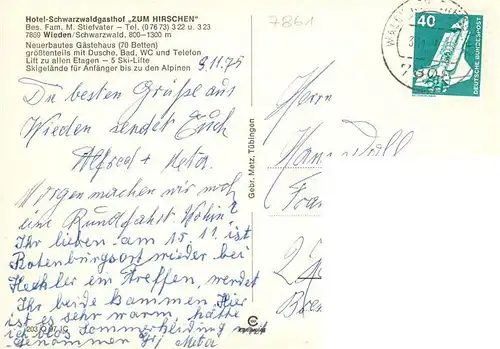 Hotel-Schwarzwaldgasthof „ZUM HIRSCHEN"
Bes. Fam. M. Stiefvater - Tel. (0 76 73) 3 22 u. 3 23
7869 Wieden/Schwarzwald, 800-1300 m
Neuerbautes Gästehaus (70 Betten)
größtenteils mit Dusche, Bad, WC und Telefon
Lift zu allen Etagen - 5 Ski-Lifte
Skigelände für Anfänger bis zu den Alpinen
9.11.75
Die besten Grüße aus
Wieden sendet Euch
Alfred + Meta.
Morgen machen wir noch
eine Rundfahrt Wohin?
Ihr lieben am 15.11. ist
Rotenburgsort wieder bei
ein Treffen, werdet
Ihr beide kommen. Hier
ist es sehr warm, hätte
ich blos Sommerkleidung mit
genommen Meta
Gebr. Metz, Tübingen
7861
Herrn
40
DEUTSCHE BUNDESPOST